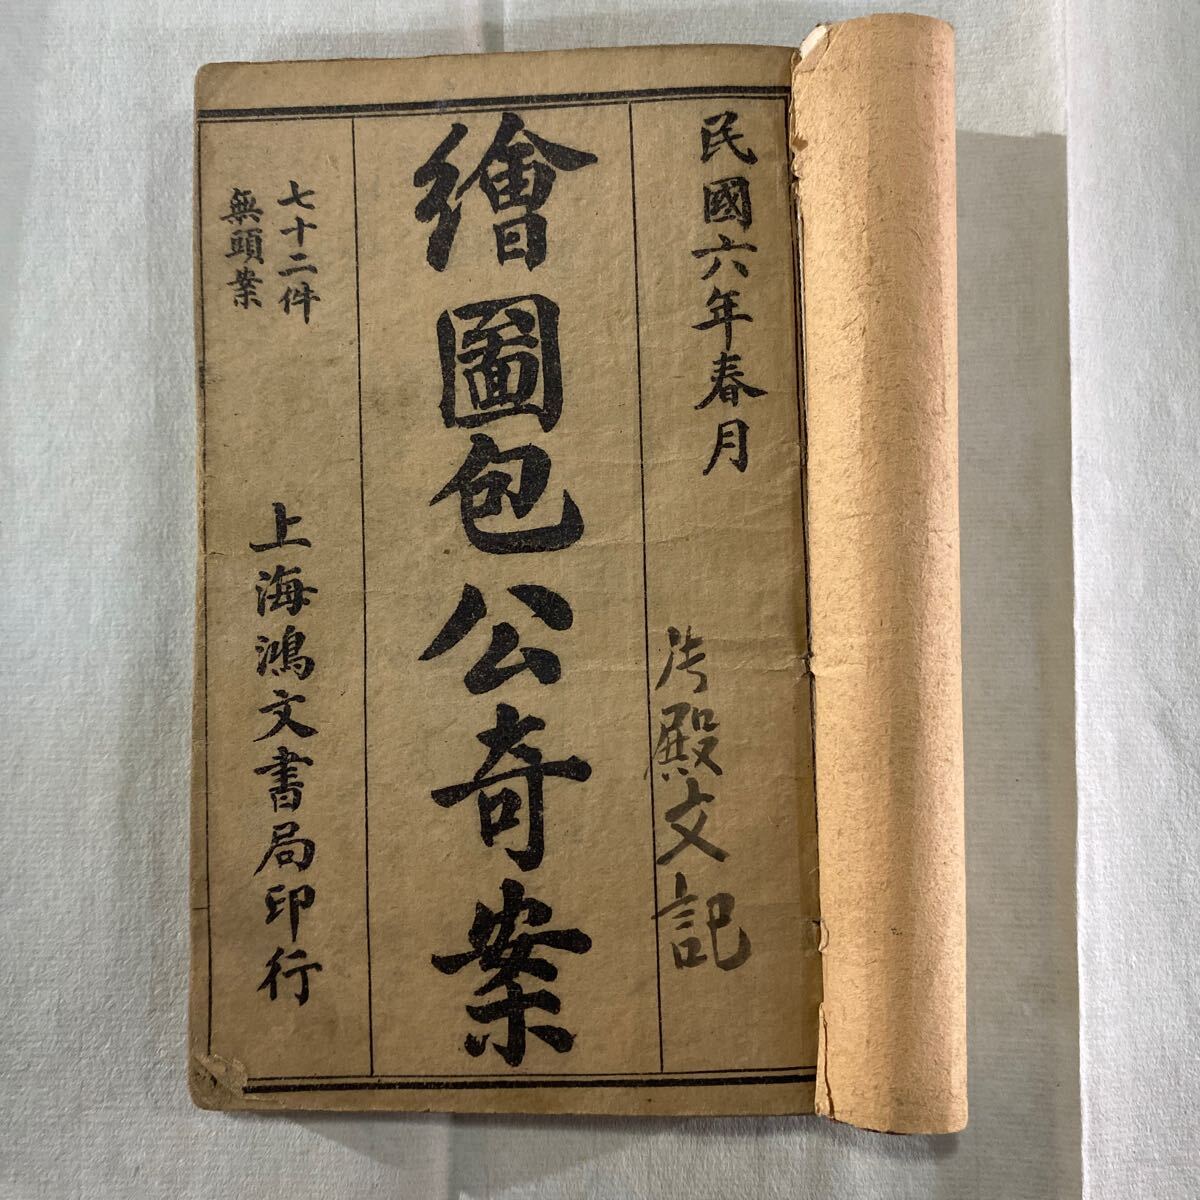 民國六年春月
殿文記
繪圖包公奇案
七十二件
無頭案
上海鴻文書局印行